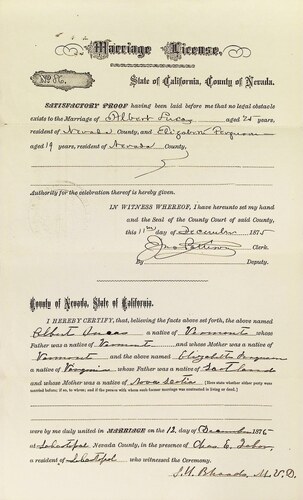 Marriage License.
No. 86.
State of California, County of Nevada.
SATISFACTORY PROOF having been laid before me that no legal obstacle
exists to the Marriage of Albert Lucas aged 25 years,
resident of Nevada County, and Elizabeth Ferguson
aged 19 years, resident of Nevada County.
Authority for the celebration thereof is hereby given.
IN WITNESS WHEREOF, I have hereunto set my hand
and the Seal of the County Court of said County,
this 11th day of December 1875
Clerk.
By Deputy.
County of Nevada, State of California.
I HEREBY CERTIFY, that, believing the facts above set forth, the above named
Albert Lucas a native of Vermont whose
Father was a native of Vermont and whose Mother was a native of
Vermont and the above named Elizabeth Ferguson
a native of Virginia whose Father was a native of Scotland
and whose Mother was a native of Nova Scotia
were by me duly united in MARRIAGE on the 12, day of December 1875
at Sebastopol Nevada County, in the presence of Chas E.
a resident of Sebastopol who witnessed the Ceremony.